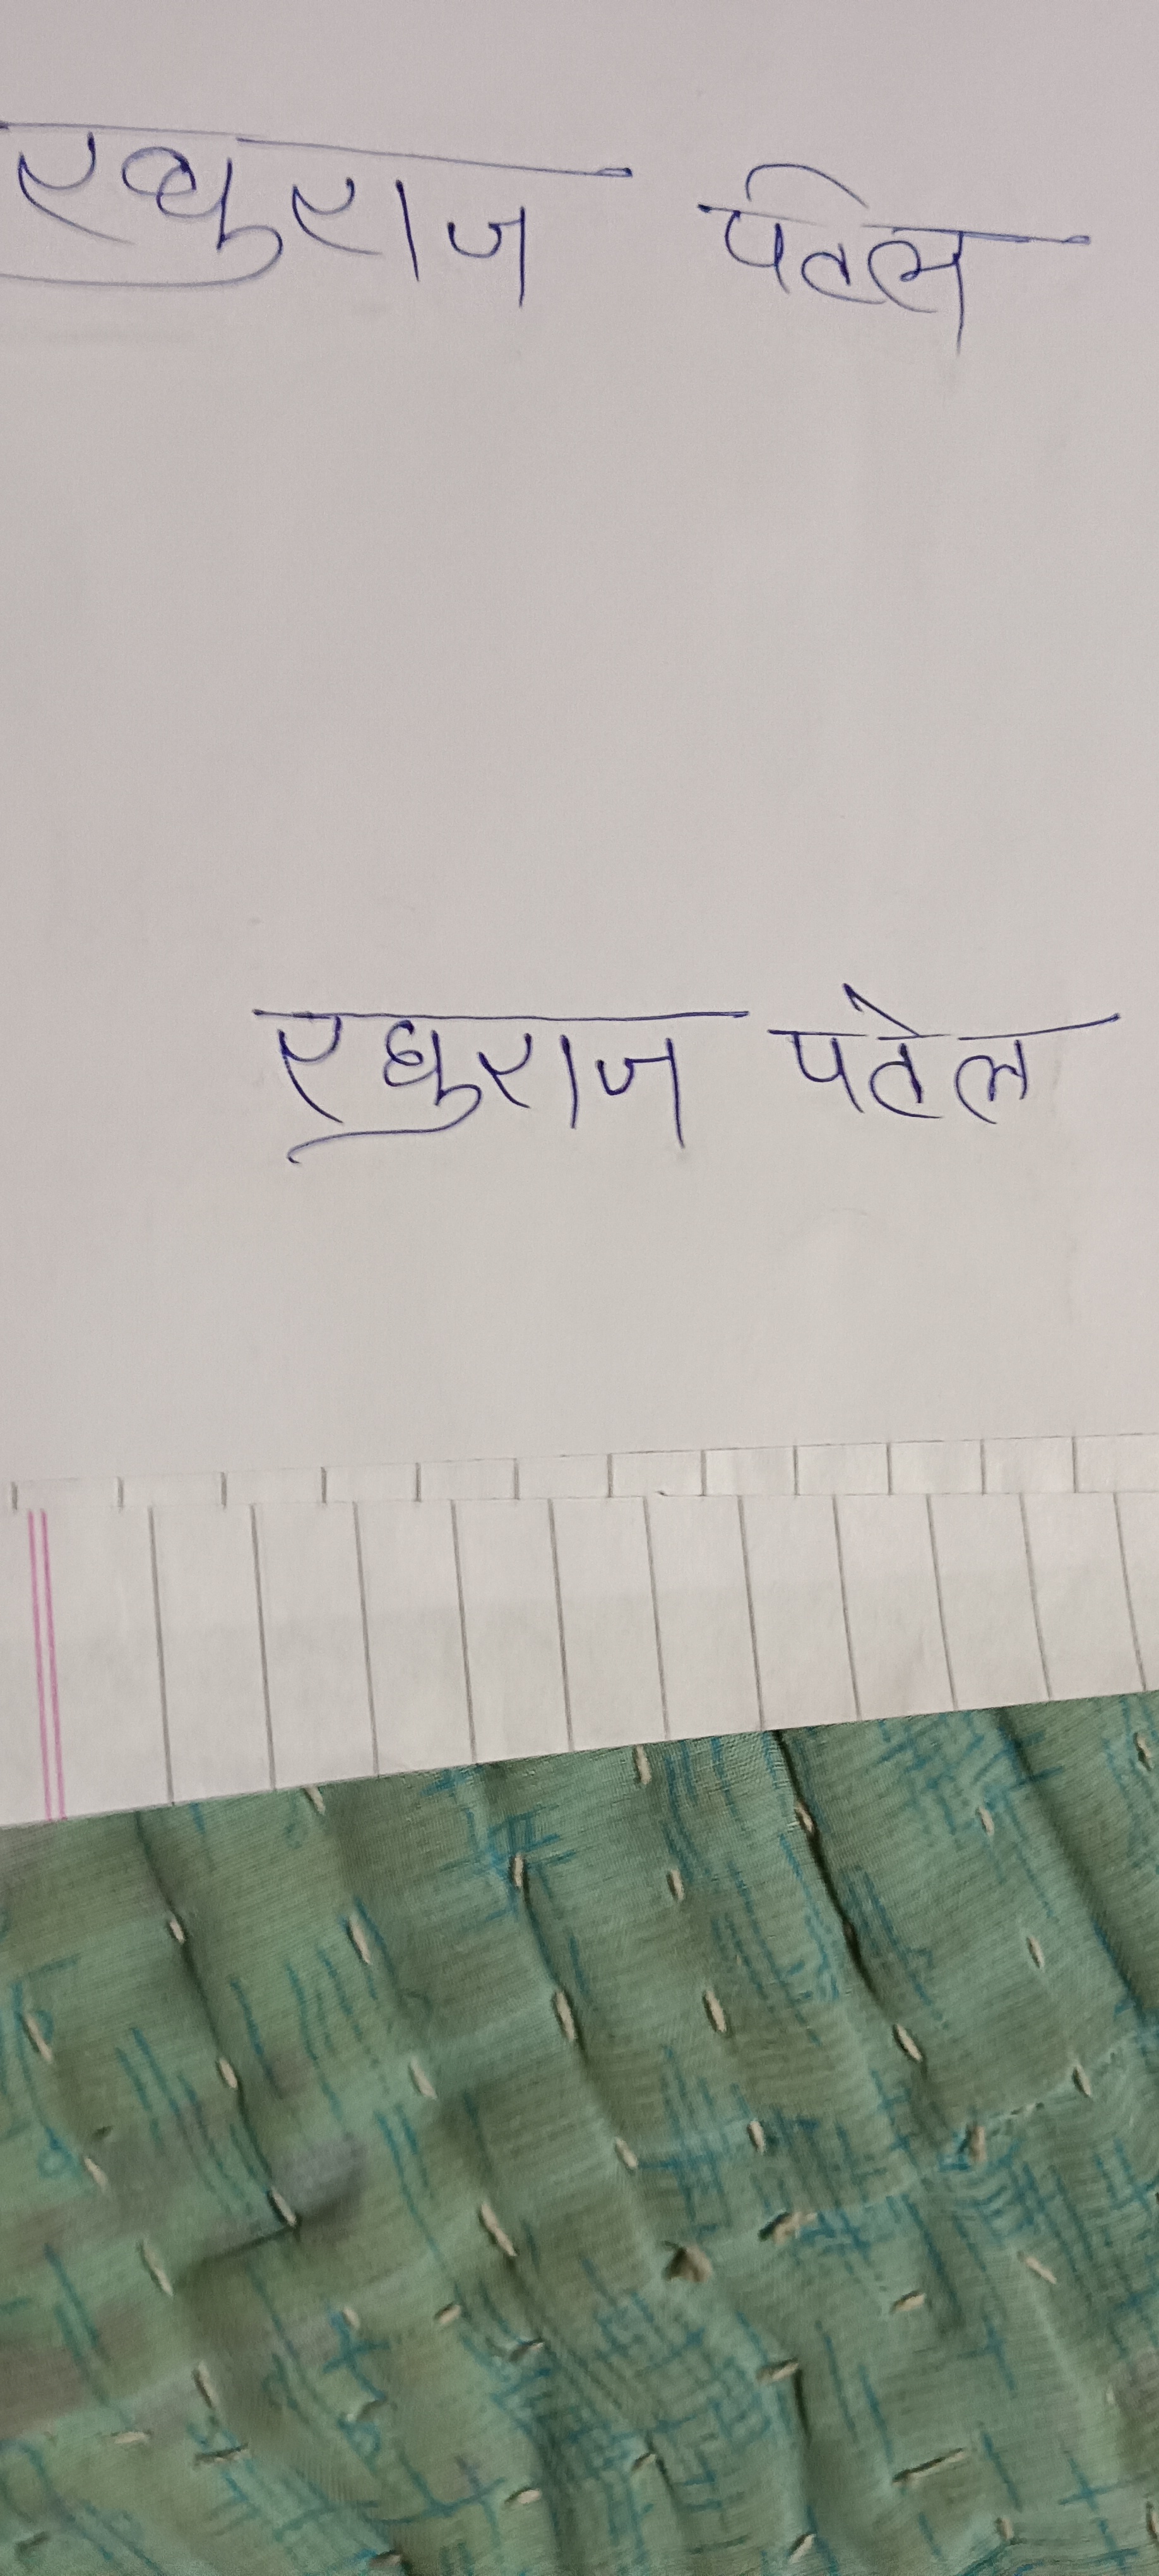 रघुराज पतेल
रघुराज पतेल